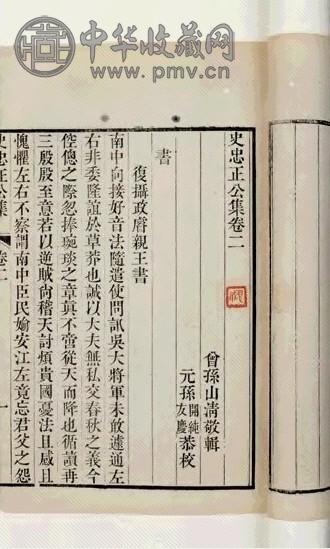 中华收藏网
www.pmv.cn
史忠正公集卷二
曾孫山清敬輯
元孫開純友慶恭校
書
復攝政睿親王書
南中向接好音法隨遣使問訊吳大將軍未敢遽通左
右非委隆誼於草莽也誠以大夫無私交春秋之義今
倥傯之際忽捧琬琰之章真不啻從天而降也循讀再
三殷殷至意若以逆賊尚稽天討煩貴國憂法且感且
愧懼左右不察謂南中臣民媮安江左竟忘君父之怨
史忠正公集 卷二 一